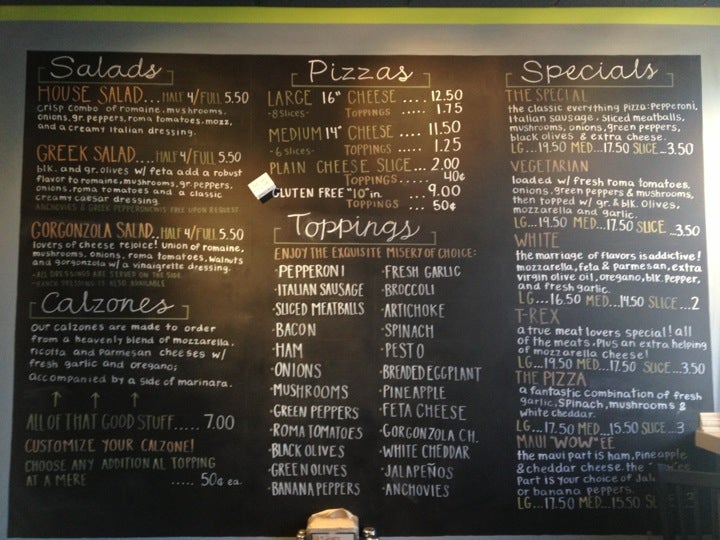 Salads
HOUSE SALAD... HALF 4/FULL 5.50
crisp combo of romaine, mushrooms,
onions, gr. peppers, roma tomatoes, mozz,
and a creamy italian dressing.
GREEK SALAD.... HALF 4/FULL 5.50
blk. and gr. olives w/ feta add a robust
flavor to romaine, mushrooms, gr. peppers,
onions, roma tomatoes and a classic
creamy caesar dressing.
ANCHOVIES & GREEK PEPPERONCINIS FREE UPON REQUEST
GORGONZOLA SALAD.. HALF 4/FULL 5.50
lovers of cheese rejoice! union of romaine,
mushrooms, onions, roma tomatoes, walnuts
and gorgonzola w/ a vinaigrette dressing.
-ALL DRESSINGS ARE SERVED ON THE SIDE.
-RANCH DRESSING IS ALSO AVAILABLE
Calzones
our calzones are made to order
from a heavenly blend of mozzarella,
ricotta and parmesan cheeses w/
fresh garlic and oregano;
accompanied by a side of marinara.
ALL OF THAT GOOD STUFF..... 7.00
CUSTOMIZE YOUR CALZONE!
CHOOSE ANY ADDITIONAL TOPPING
AT A MERE ..... 50¢ ea.
Pizzas
LARGE 16" CHEESE .... 12.50
-8 slices- TOPPINGS ..... 1.75
MEDIUM 14" CHEESE .... 11.50
-6 slices- TOPPINGS ..... 1.25
PLAIN CHEESE SLICE... 2.00
TOPPINGS..... 40¢
GLUTEN FREE "10" in. .. 9.00
TOPPINGS ... 50¢
Toppings
ENJOY THE EXQUISITE MISERY OF CHOICE:
·PEPPERONI
·ITALIAN SAUSAGE
·SLICED MEATBALLS
·BACON
·HAM
·ONIONS
·MUSHROOMS
·GREEN PEPPERS
·ROMA TOMATOES
·BLACK OLIVES
·GREEN OLIVES
·BANANA PEPPERS
·FRESH GARLIC
·BROCCOLI
·ARTICHOKE
·SPINACH
·PESTO
·BREADED EGGPLANT
·PINEAPPLE
·FETA CHEESE
·GORGONZOLA CH.
·WHITE CHEDDAR
·JALAPEÑOS
·ANCHOVIES
Specials
THE SPECIAL
the classic everything pizza: pepperoni,
italian sausage, sliced meatballs,
mushrooms, onions, green peppers,
black olives & extra cheese.
LG...19.50 MED...17.50 SLICE...3.50
VEGETARIAN
loaded w/ fresh roma tomatoes,
onions, green peppers & mushrooms,
then topped w/ gr. & blk. olives,
mozzarella and garlic.
LG...19.50 MED...17.50 SLICE...3.50
WHITE
the marriage of flavors is addictive!
mozzarella, feta & parmesan, extra
virgin olive oil, oregano, blk. pepper,
and fresh garlic.
LG...16.50 MED...14.50 SLICE...2
T-REX
a true meat lovers special! all
of the meats. Plus an extra helping
of mozzarella cheese!
LG...19.50 MED...17.50 SLICE...3.50
THE PIZZA
a fantastic combination of fresh
garlic, spinach, mushrooms &
white cheddar.
LG...17.50 MED...15.50 SLICE...3
MAUI "WOW"EE
the maui part is ham, pineapple
& cheddar cheese. the
part is your choice of
or banana peppers.
LG...17.50 MED...15.50